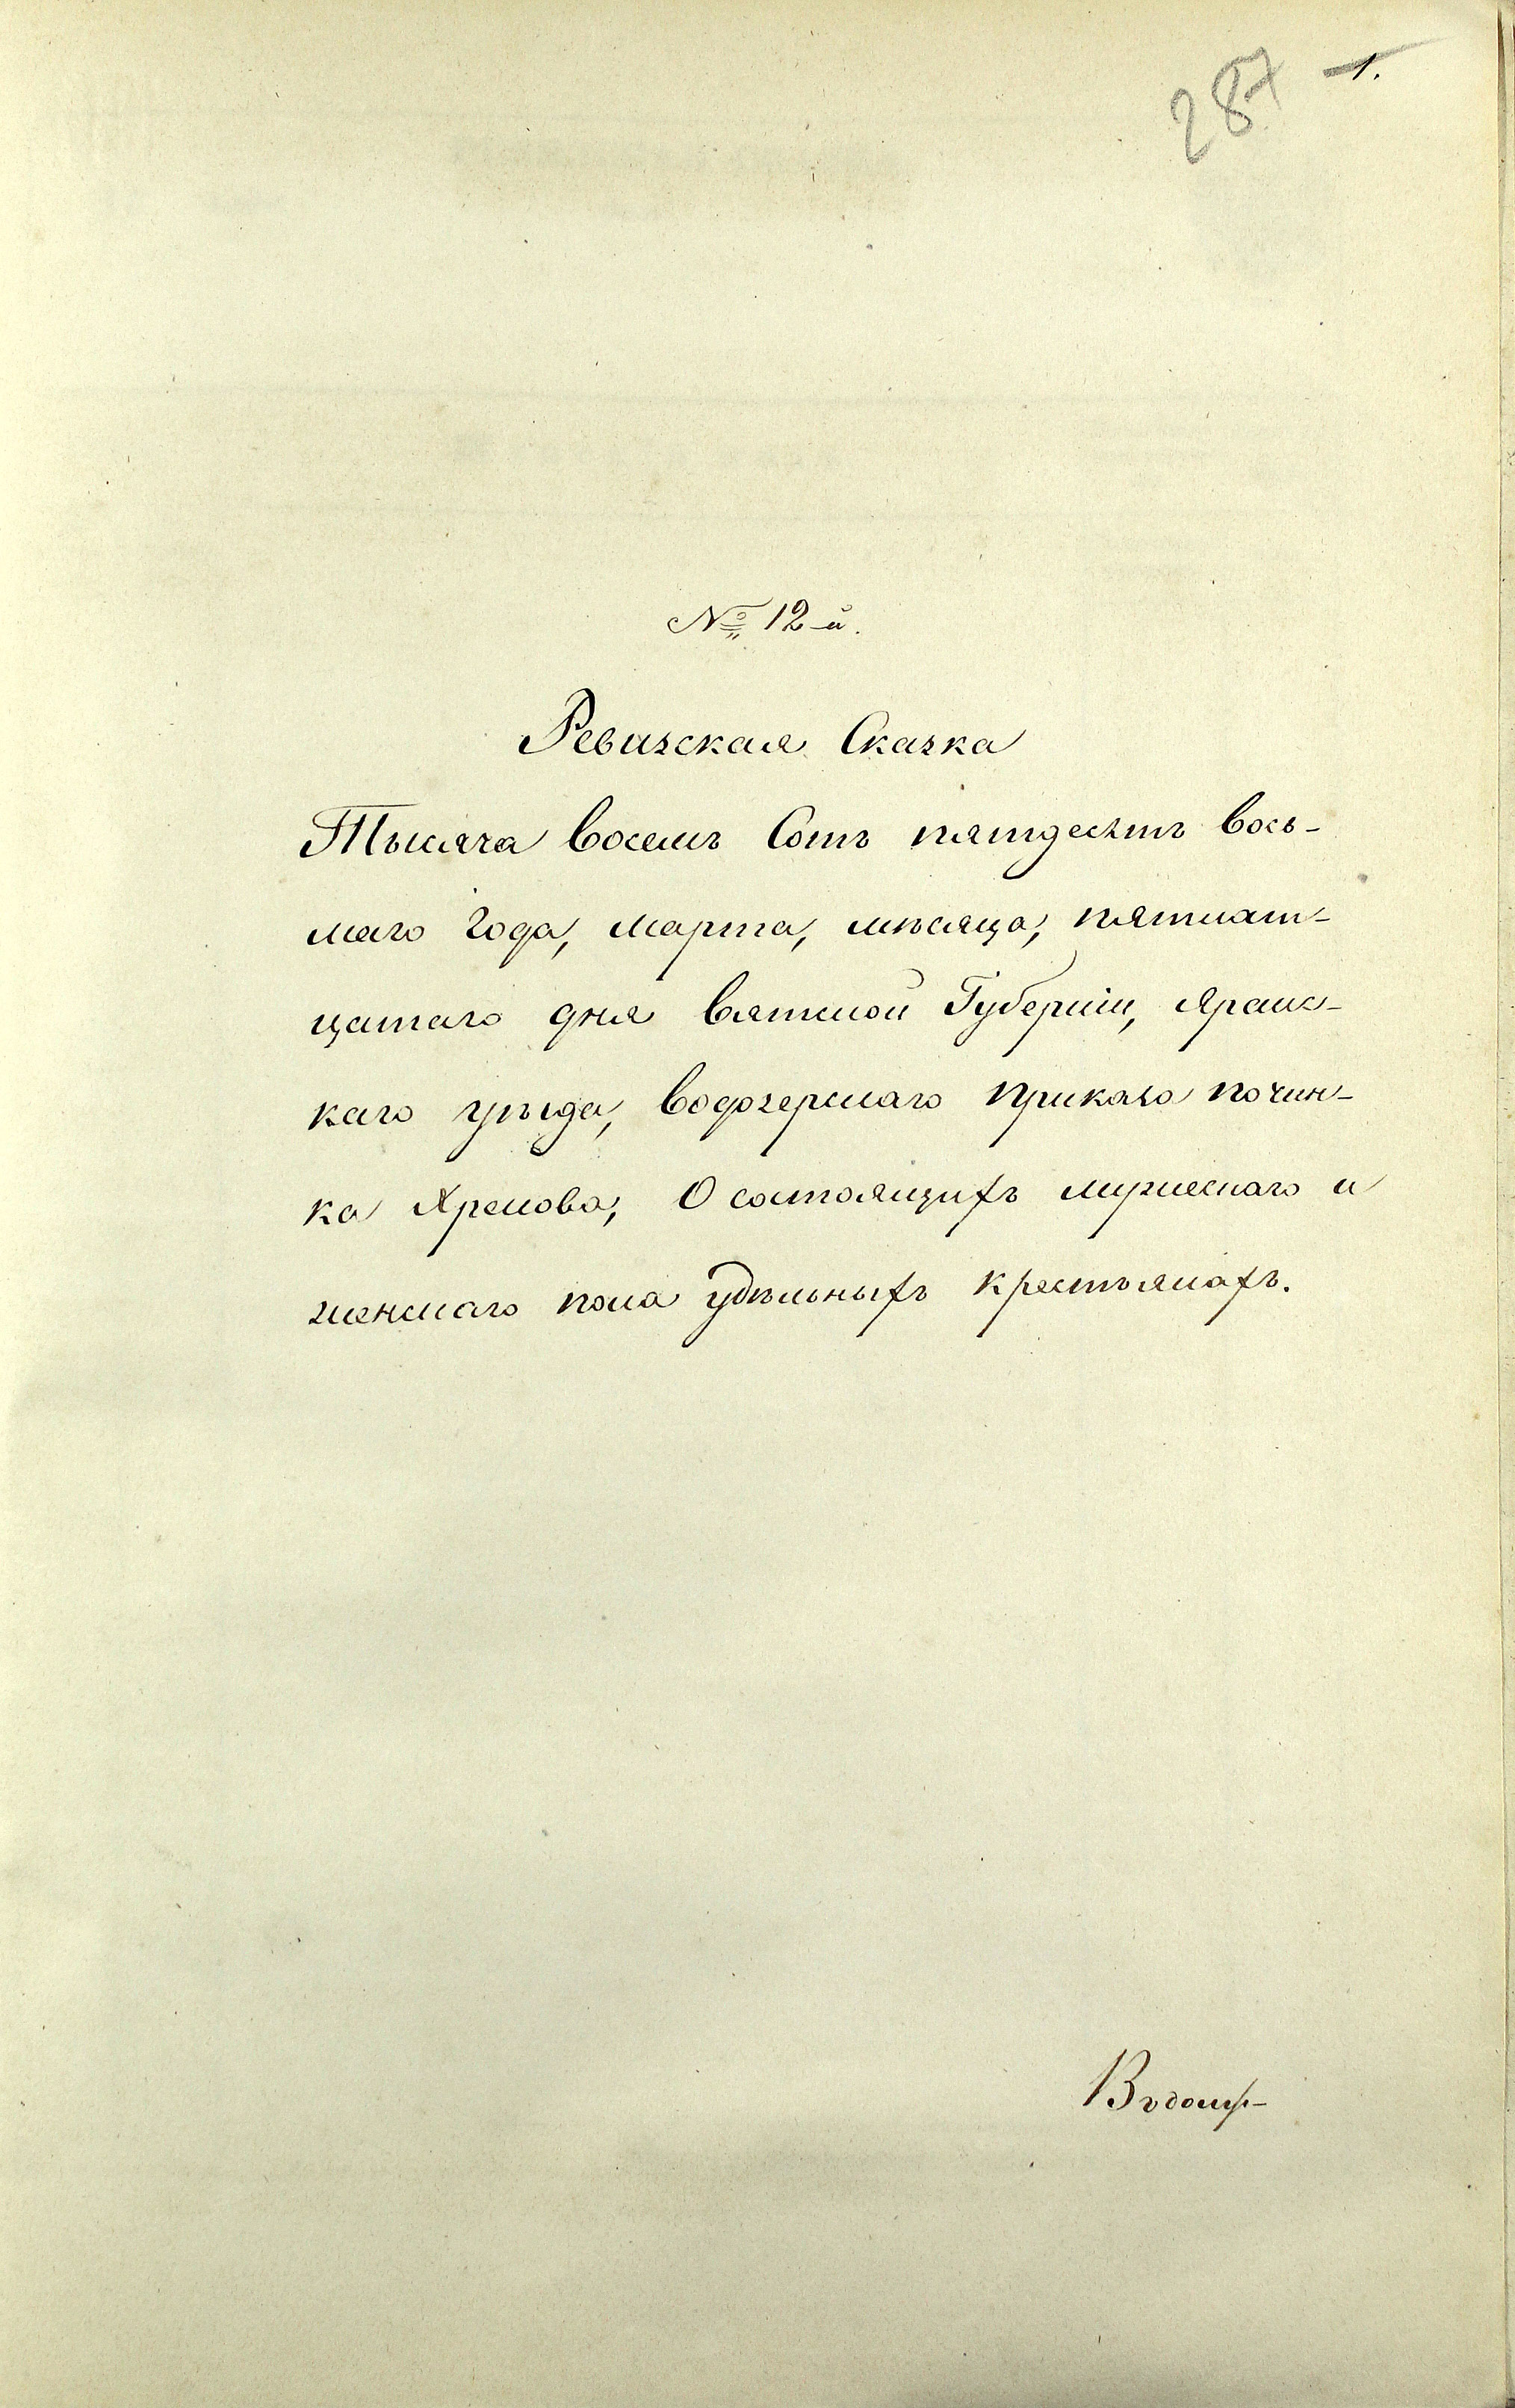 287 1.
№ 12-й.
Ревизская Сказка
Тысяча восемь Сотъ пятдесятъ вось-
маго года, марта, мѣсяца, пятнат-
цатаго дня Вятской Губерніи, Яранс-
каго уѣзда, Водозерскаго приказа починк-
ка Хренова, О состоящихъ мужескаго и
женскаго пола удѣльныхъ крестьянахъ.